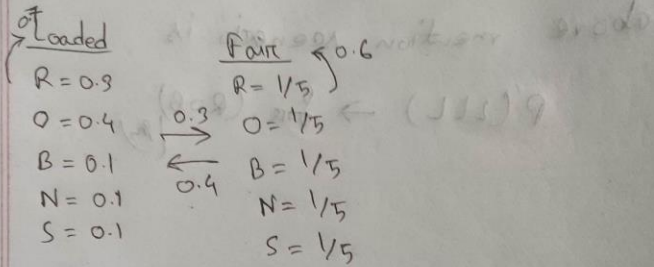 0.7
Loaded
R = 0.3
O = 0.4
B = 0.1
N = 0.1
S = 0.1
0.3
0.4
Fair
0.6
R = 1/5
O = 1/5
B = 1/5
N = 1/5
S = 1/5